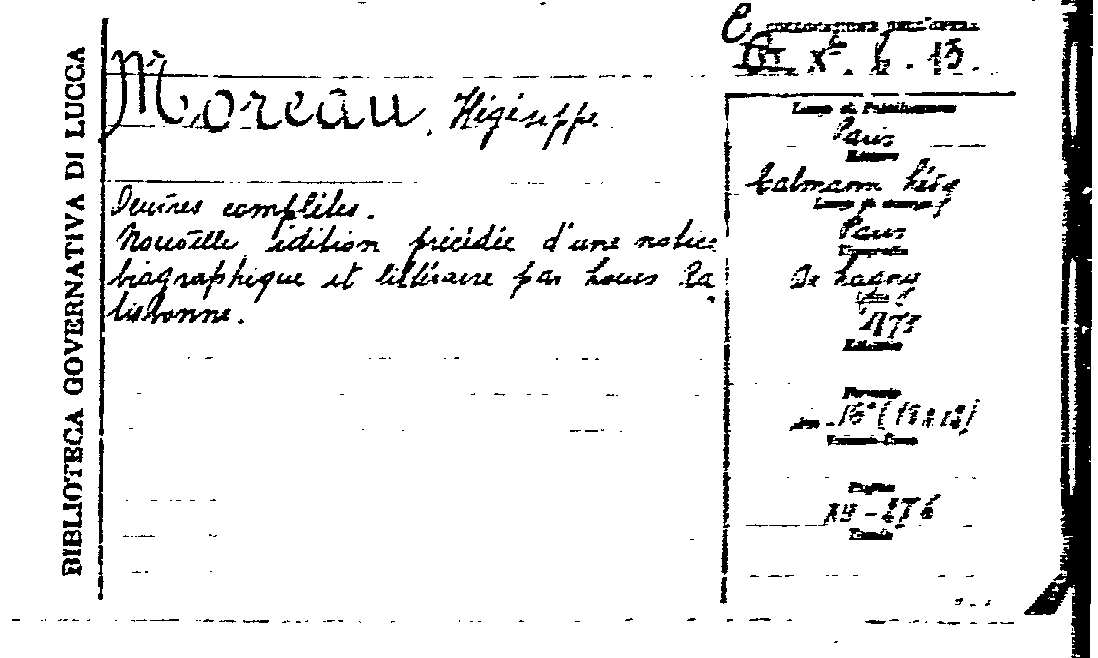 BIBLIOTECA GOVERNATIVA DI LUCCA
Moreau, Hégésippe
Oeuvres complètes.
Nouvelle édition précédée d'une notice
biographique et littéraire par Louis Ra
tisbonne.
COLLOCAZIONE DELL'OPERA
Luogo di Pubblicazione
Paris
Editore
Calmann Lévy
Luogo di stampa
Paris
Tipografia
De Lagny
Edizione
Formato
Pagine